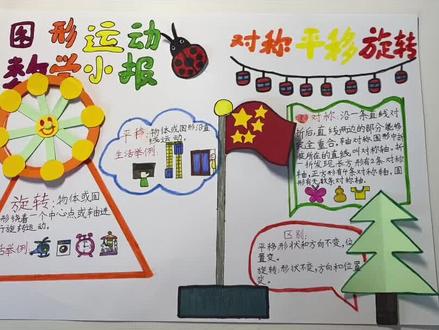 图形运动
数学小报
对称平移旋转
平移:物体或图形沿直
线运动。
生活举例:
旋转:物体或图
形绕着一个中心点或轴进
行旋转运动。
活举例:
对称:沿一条直线对
折后直线两边的部分能够
完全重合。轴对称图形中折
痕所在的直线叫对称轴。折
一折发现长方形有2条对称
轴,正方形有4条对称轴,圆
形有无数条对称轴。
区别:
平移形状和方向不变,位
置变。
旋转:形状不变,方向和位置
变。